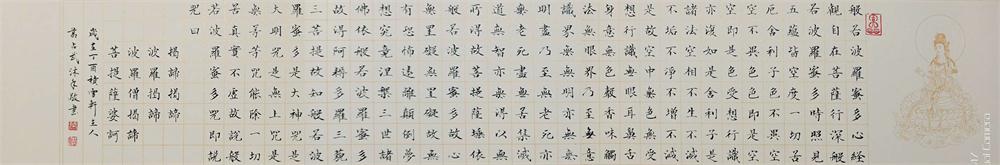 般若波羅蜜多心經
觀自在菩薩行深般
若波羅蜜多時照見
五蘊皆空度一切苦
厄舍利子色不異空
空不異色色即是空
空即是色受想行識
亦復如是舍利子是
諸法空相不生不滅
不垢不淨不增不減
是故空中無色無受
想行識無眼耳鼻舌
身意無色聲香味觸
法無眼界乃至無意
識界無無明亦無無
明盡乃至無老死亦
無老死盡無苦集滅
道無智亦無得以無
所得故菩提薩埵依
般若波羅蜜多故心
無罣礙無罣礙故無
有恐怖遠離顛倒夢
想究竟涅槃三世諸
佛依般若波羅蜜多
故得阿耨多羅三藐
三菩提故知般若波
羅蜜多是大神咒是
大明咒是無上咒是
無等等咒能除一切
苦真實不虛故說般
若波羅蜜多咒即說
咒曰
揭諦揭諦
波羅揭諦
波羅僧揭諦
菩提薩婆訶
歲在丁酉積雪軒主人
武沐手敬書